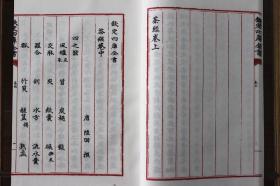 欽定四庫全書
茶經卷上
欽定四庫全書
茶經卷中
唐 陸羽 撰
四之器
風爐 筥 炭檛
交牀 夾 紙囊
羅合 則 水方 漉水囊
瓢 竹筴 熟盂
欽定四庫全書